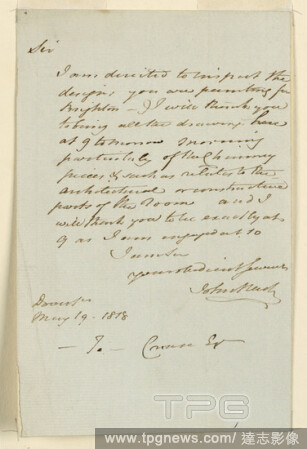 Sir
I am directed to inspect the
designs you are painting for
Brighton – I will thank you
to bring all the drawings here
at 9 tomorrow morning
particularly of the Chimney
pieces & such as relates to the
architectural or constructive
parts of the Room and I
will thank you to be exactly at
9 as I am engaged at 10
I am Sir
your obedient Servant
John Nash
May 19. 1818
— To — Crace Esq
TPG
www.tpgnews.com/達志影像